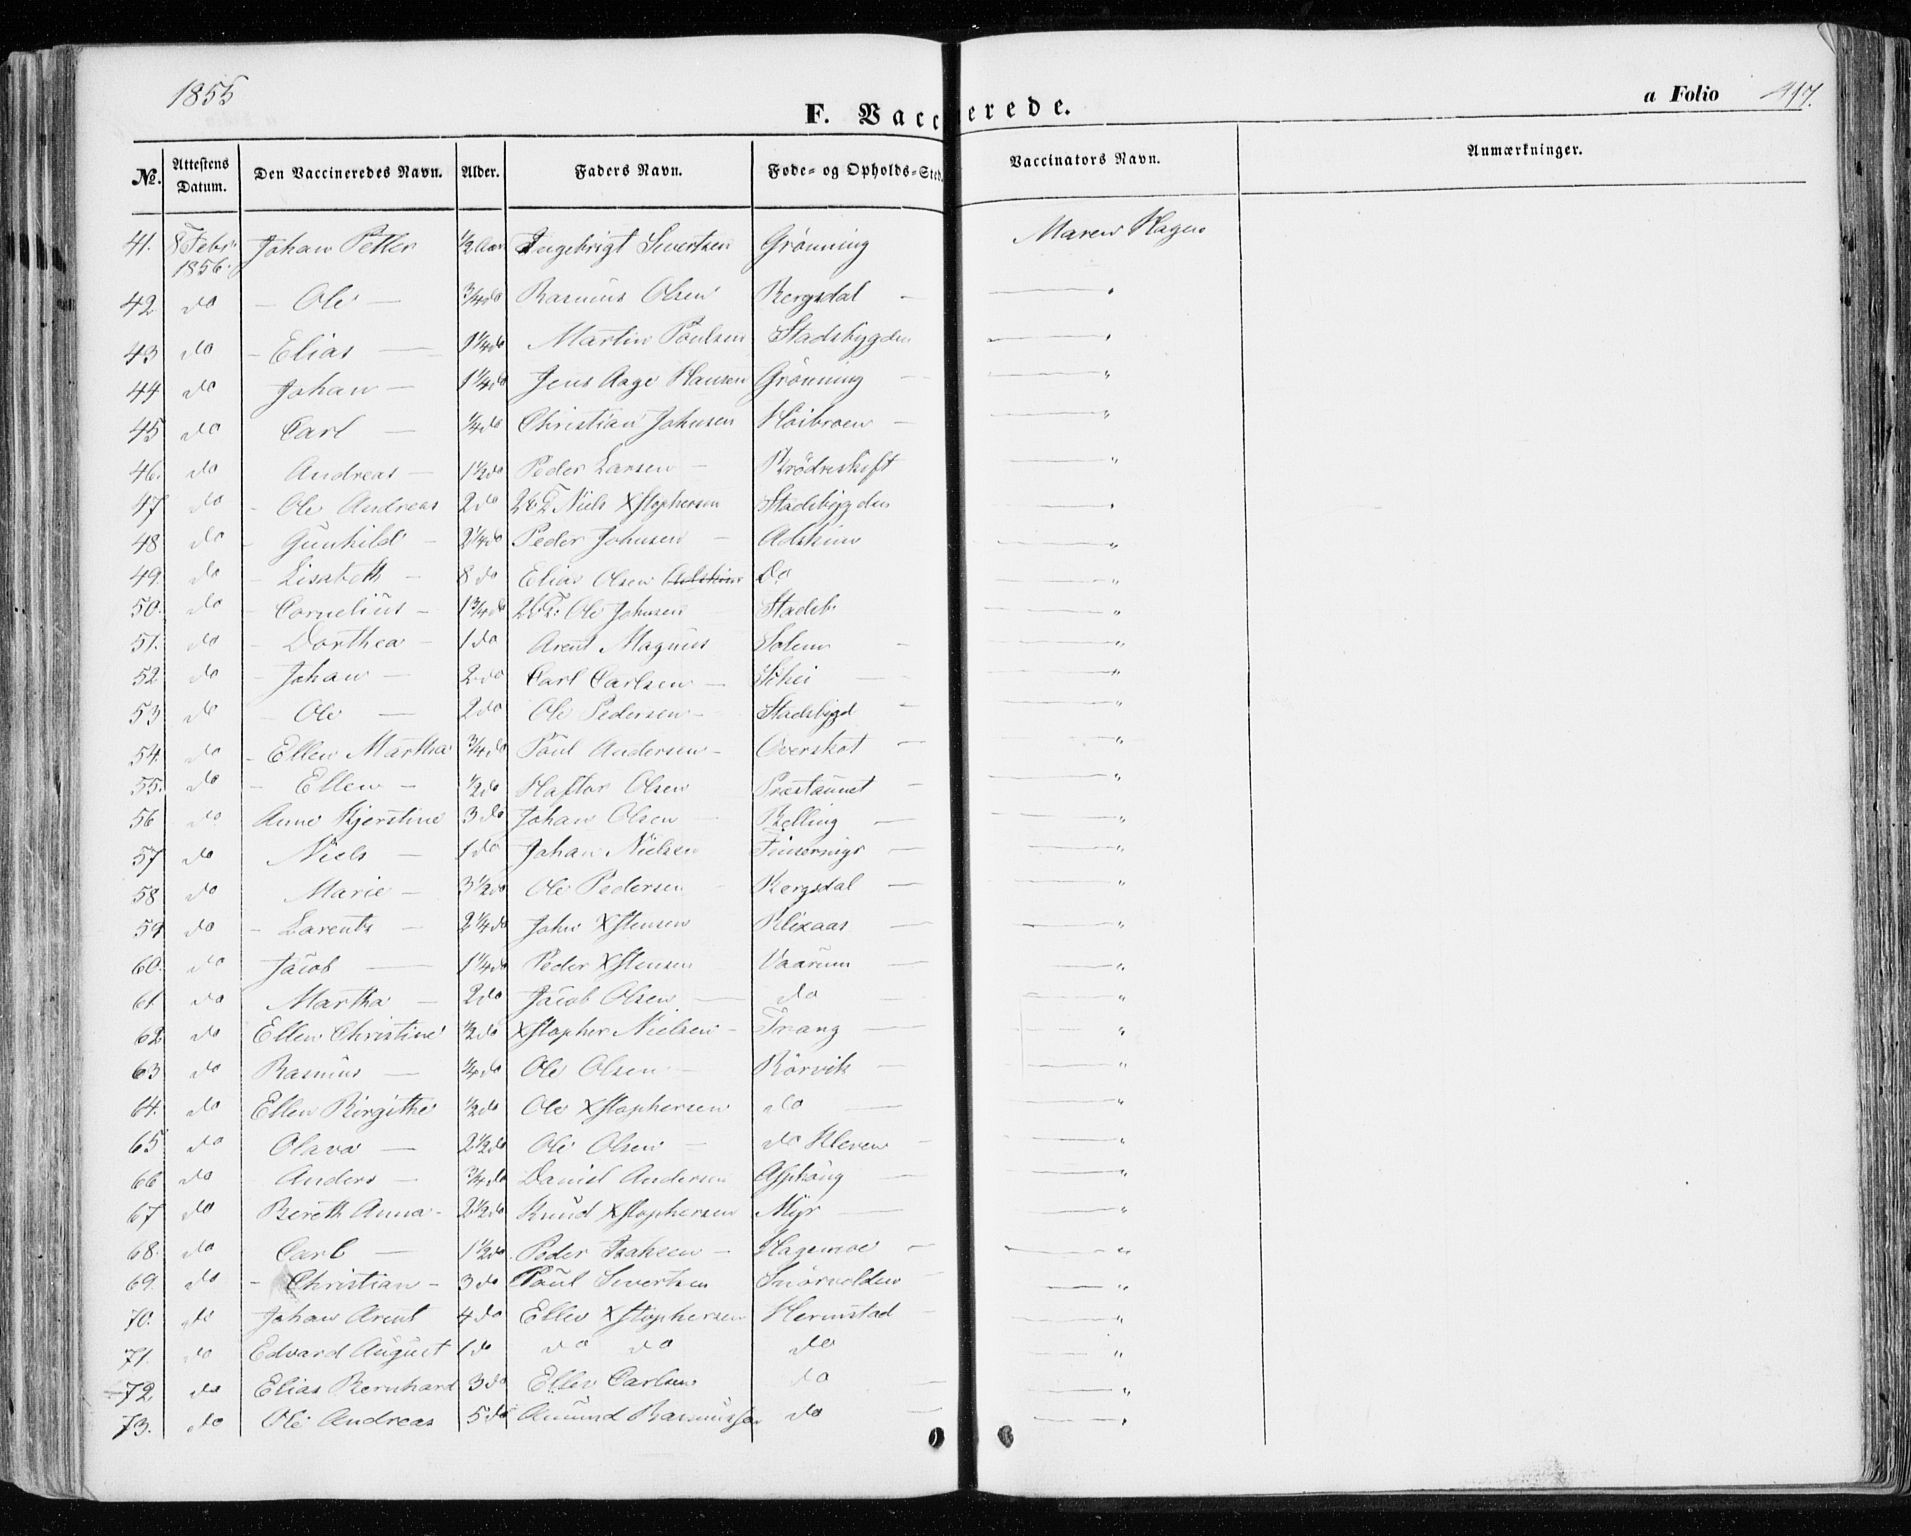 1855
F. Vaccinerede.
a Folio 417.
No. Attestens Datum. Den Vaccineredes Navn. Alder. Faders Navn. Føde- og Opholds-Sted. Vaccinators Navn. Anmærkninger.
41. 8 Febr. 1856. Johan Petter 1/2 Aar Ingebrigt Sivertsen Grönning Maren Hagen
42 do - Ole - 3/4 do Rasmus Olsen Bergsdal - — "
43 do - Elias — 1 1/4 do Martin Poulsen Stadsbygden — "
44 do Johan - 1 1/4 do Jens Aage Hansen Grönning — — "
45 do Carl — 1/4 do Christian Johnsen Höibroen - — "
46. do Andreas - 1 1/2 do Peder Larsen - Brödreskift — "
47 do - Ole Andreas 2 do Niels Xstophersen Stadsbygden — "
48 do - Gunhild - 2 1/4 do Peder Johnsen - Askim — "
49. do - Lisabeth - 8 do Elias Olsen Do — "
50. do - Cornelius - 1 3/4 do Ole Johnsen Stadsb. — "
51. do - Dorthea - 1 do Arent Magnus Solem - — "
52 do - Johan - 2 do Carl Carlsen — Schei — — "
53 do - Ole — 2 do Ole Pedersen - Stadsbygd - — "
54. do - Ellen Martha 3/4 do Poul Andersen - Overskot — — "
55. do - Ellen - 1/2 do Haftor Olsen Præstaunet - — "
56 do Anne Kjerstine 3 do Johan Olsen Relling — — "
57 do Niels — 1 do Johan Nielsen — — "
58 do Marie - 3 1/2 do Ole Pedersen Bergsdal — — "
59 do - Larents 2 1/4 do John Xstensen Klixaas — — "
60. do Jacob — 1 1/4 do Peder Xstensen Vaarum — — "
61. do Martha - 2 do Jacob Olsen — do - — "
62 do Ellen Christine 1/2 do Xstopher Nielsen - Trang — — "
63 do Rasmus — 1/4 do Ole Olsen - Rörvik - — "
64. do Ellen Birgithe 1/2 do Ole Xstophersen do — — "
65 do Olava — 2 1/2 do Ole Olsen - do Kleven - — "
66 do Anders - 3/4 do Daniel Andersen Asphaug — — "
67 do Bereth Anna - 2 1/2 do Knud Xstophersen Myr — — "
68. do Carl — 1 1/2 do Peder Isaksen - Hagemoe - — "
69. do - Christian - 3 do Poul Sivertsen - — "
70. do Johan Arent 4 do Ellev Xstophersen Hermstad - — "
71. do Edvard August 1 do do do do — "
72 do Elias Bernhard 3 do Ellev Carlsen do - — "
73. do Ole Andreas 5 do Amund Rasmussen do - — "